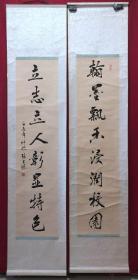 翰墨飘香浸润校园
立志立人彰显特色